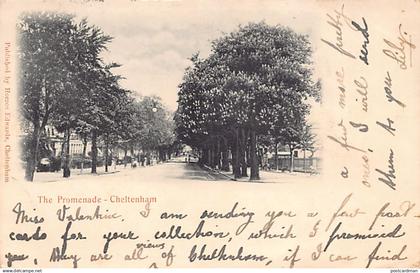 Published by Horace Edwards, Cheltenham
The Promenade - Cheltenham
Miss Valentine, I am sending you a few post
cards for your collection, which I promised
you, they are all of Cheltenham, if I can find
views
a few more pretty
ones, I will send
them to you
as
Lily.
postcardman